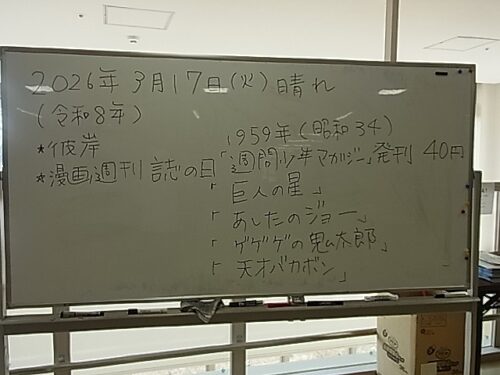 2026年3月17日(火)晴れ
(令和8年)
*彼岸
*漫画週刊誌の日
1959年(昭和34)
「週間少年マガジン」発刊 40円
「巨人の星」
「あしたのジョー」
「ゲゲゲの鬼太郎」
「天才バカボン」